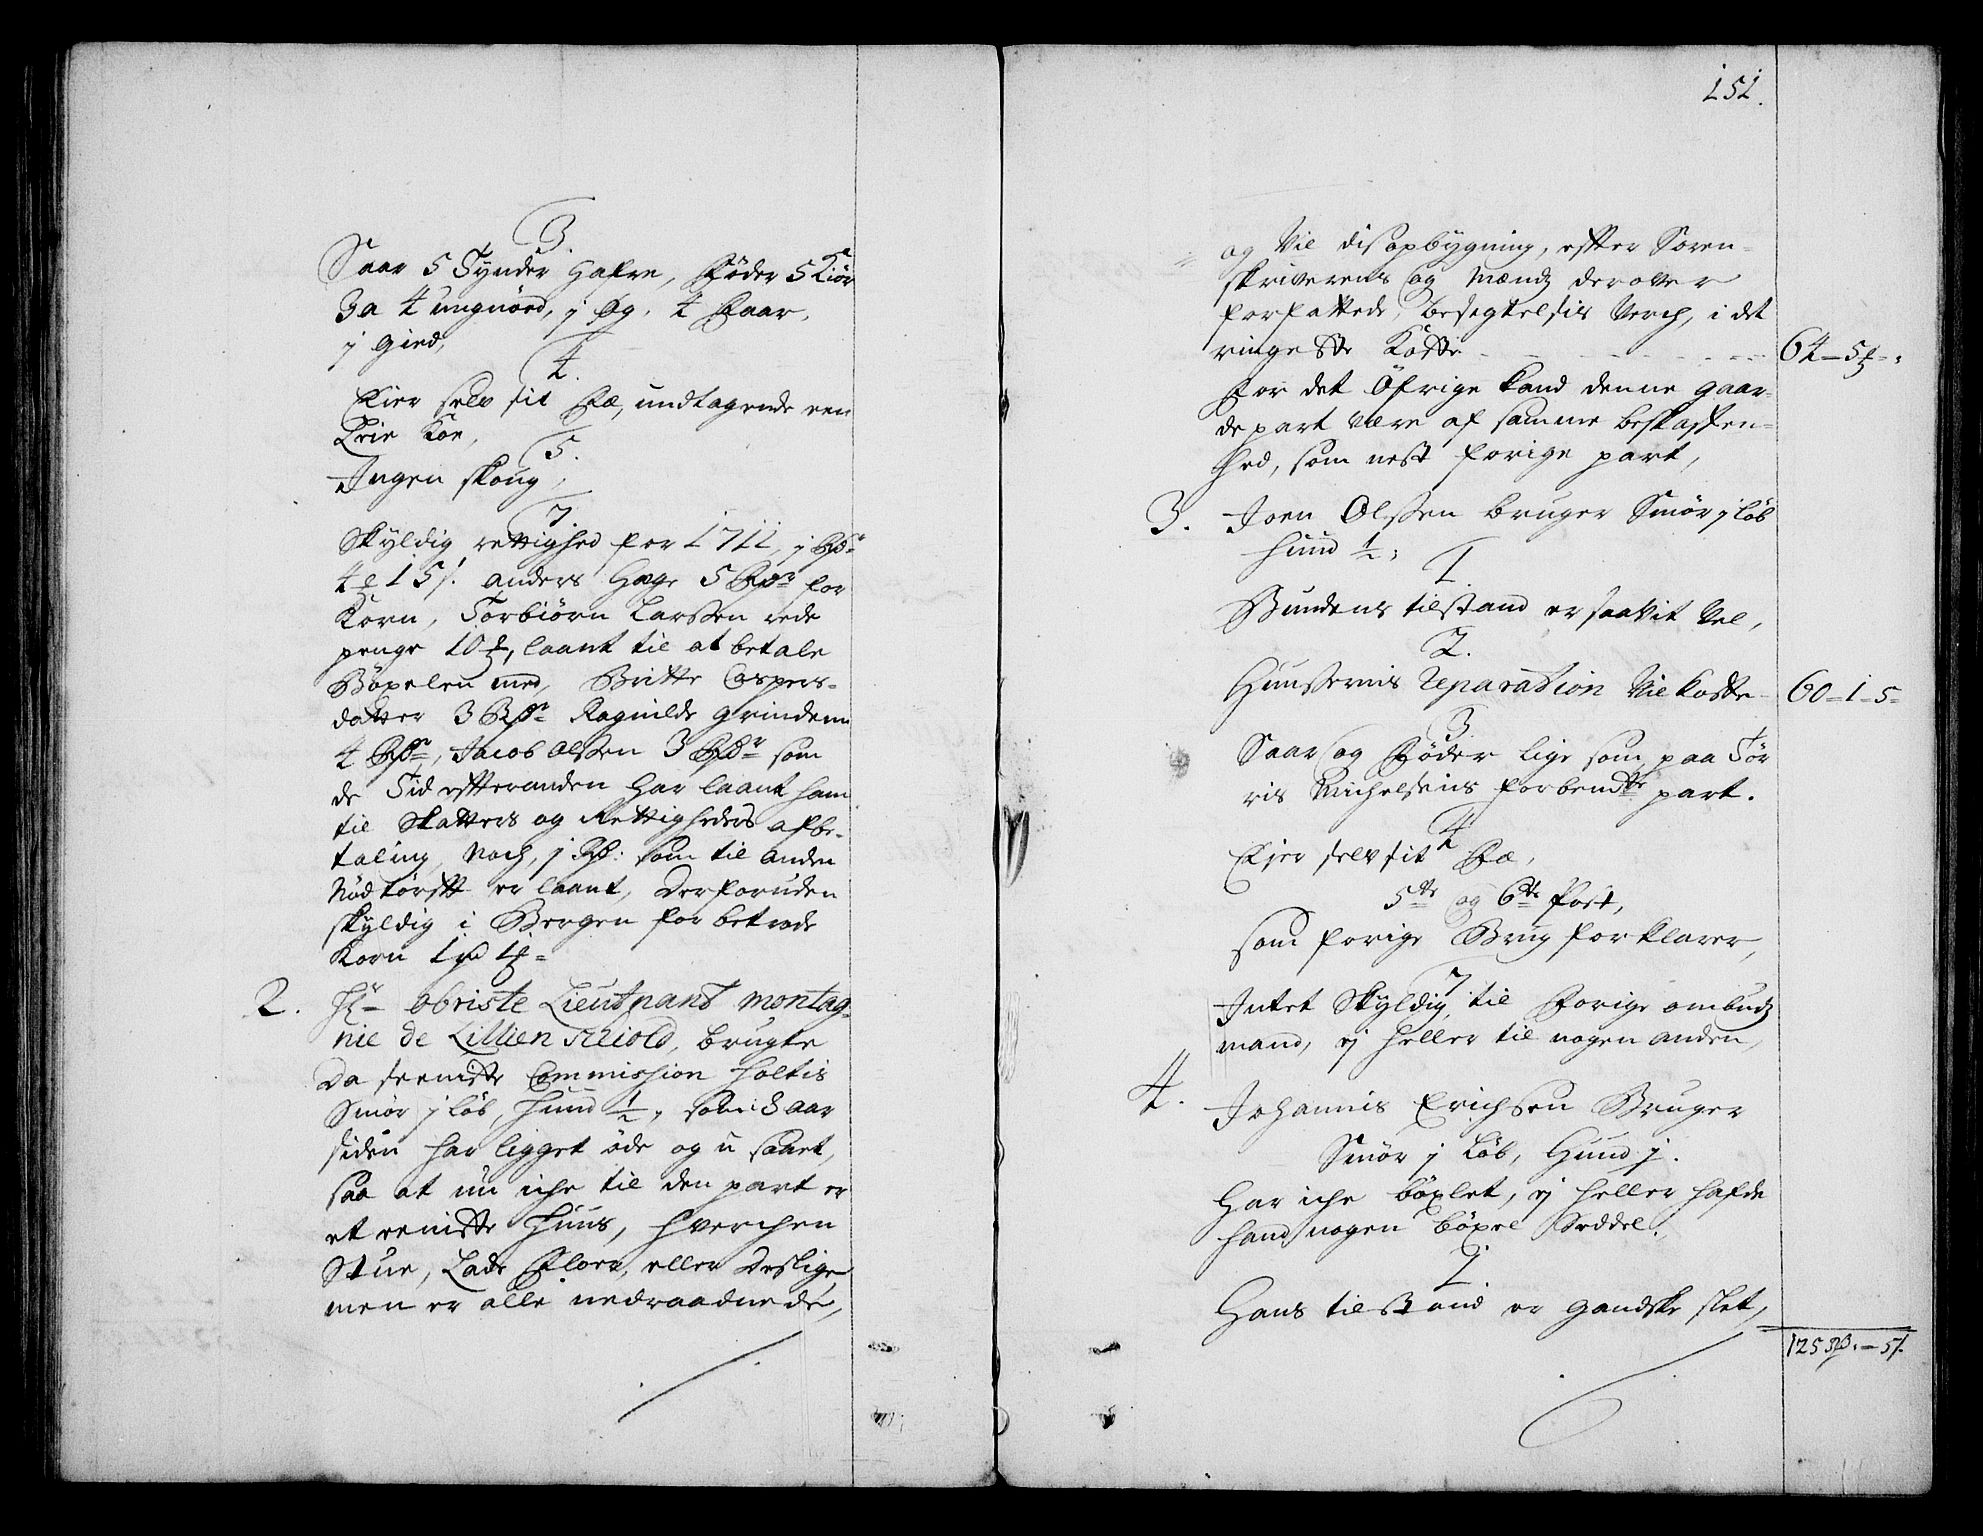 3.
Saar 5 Tynder Hafre, Føder 5 Kiør
3 a 4 ungnöed, j Øg, 4 Faar,
j Gied,
4.
Eier selv sit Fæ, undtagende een
Leie Koe,
5.
Ingen skoug,
7.
Skyldig rettighed for 1711, j Rdr
4 15 s. anders Hage 5 Rdr for
Korn, Torbiørn Larssen rede
penge 10, laant til at betale
Böxelen med, Britte Caspers-
datter 3 Rdr Ragnilde Grindem
4 Rdr, Jacob olssen 3 Rdr som
de Tid effter anden Har laant ham
til Skatters og Rettigheders afbe-
taling, Noch, j Rd: som til anden
Nødtörfft er laant, Derforuden
skyldig i Bergen for betrode
Korn
2. Hr obriste Lieutnant montag-
nie de Lillien Skiold, brugte
Da seeniste Commission Holtis
Smör j löb, Huud ½, som 3 aar
siden har ligget øde og u saaet,
saa at nu iche til den part er
et eeniste Huus, hverchen
Stue, Lade Floer, eller Deslige
men er alle nedraadnede,
151.
og Vil dis opbygning, effter Soren-
skriverens og Mænds derover
forfattede besigtelsis Verch, i det
ringeste Koste 64-5
For det Öfrige kand denne gaar-
de part være af samme beskaffen-
hed, som nest forige part,
3. Joen Olssen bruger Smör j löb
huud ½,
1.
Bundens tilstand er saavit Vel,
2.
Huussernis reparation Vil koste 60-1-5
3.
Saar og Føder lige som paa Tør
ris Michelsens forbendte part.
4
Ejer selv sit Fæ,
5te og 6te Post,
som forige Brug forklarer,
7
Intet Skyldig, til Forige ombuds
mand, ej heller til nogen anden,
4. Johannis Erichsen Bruger
Smör j Löb, Huud j.
Har iche böxlet, ej heller hafde
hand nogen böxel Seddel.
1.
Hans tilstand er gandske slet,
125 Rd. - 5 s.